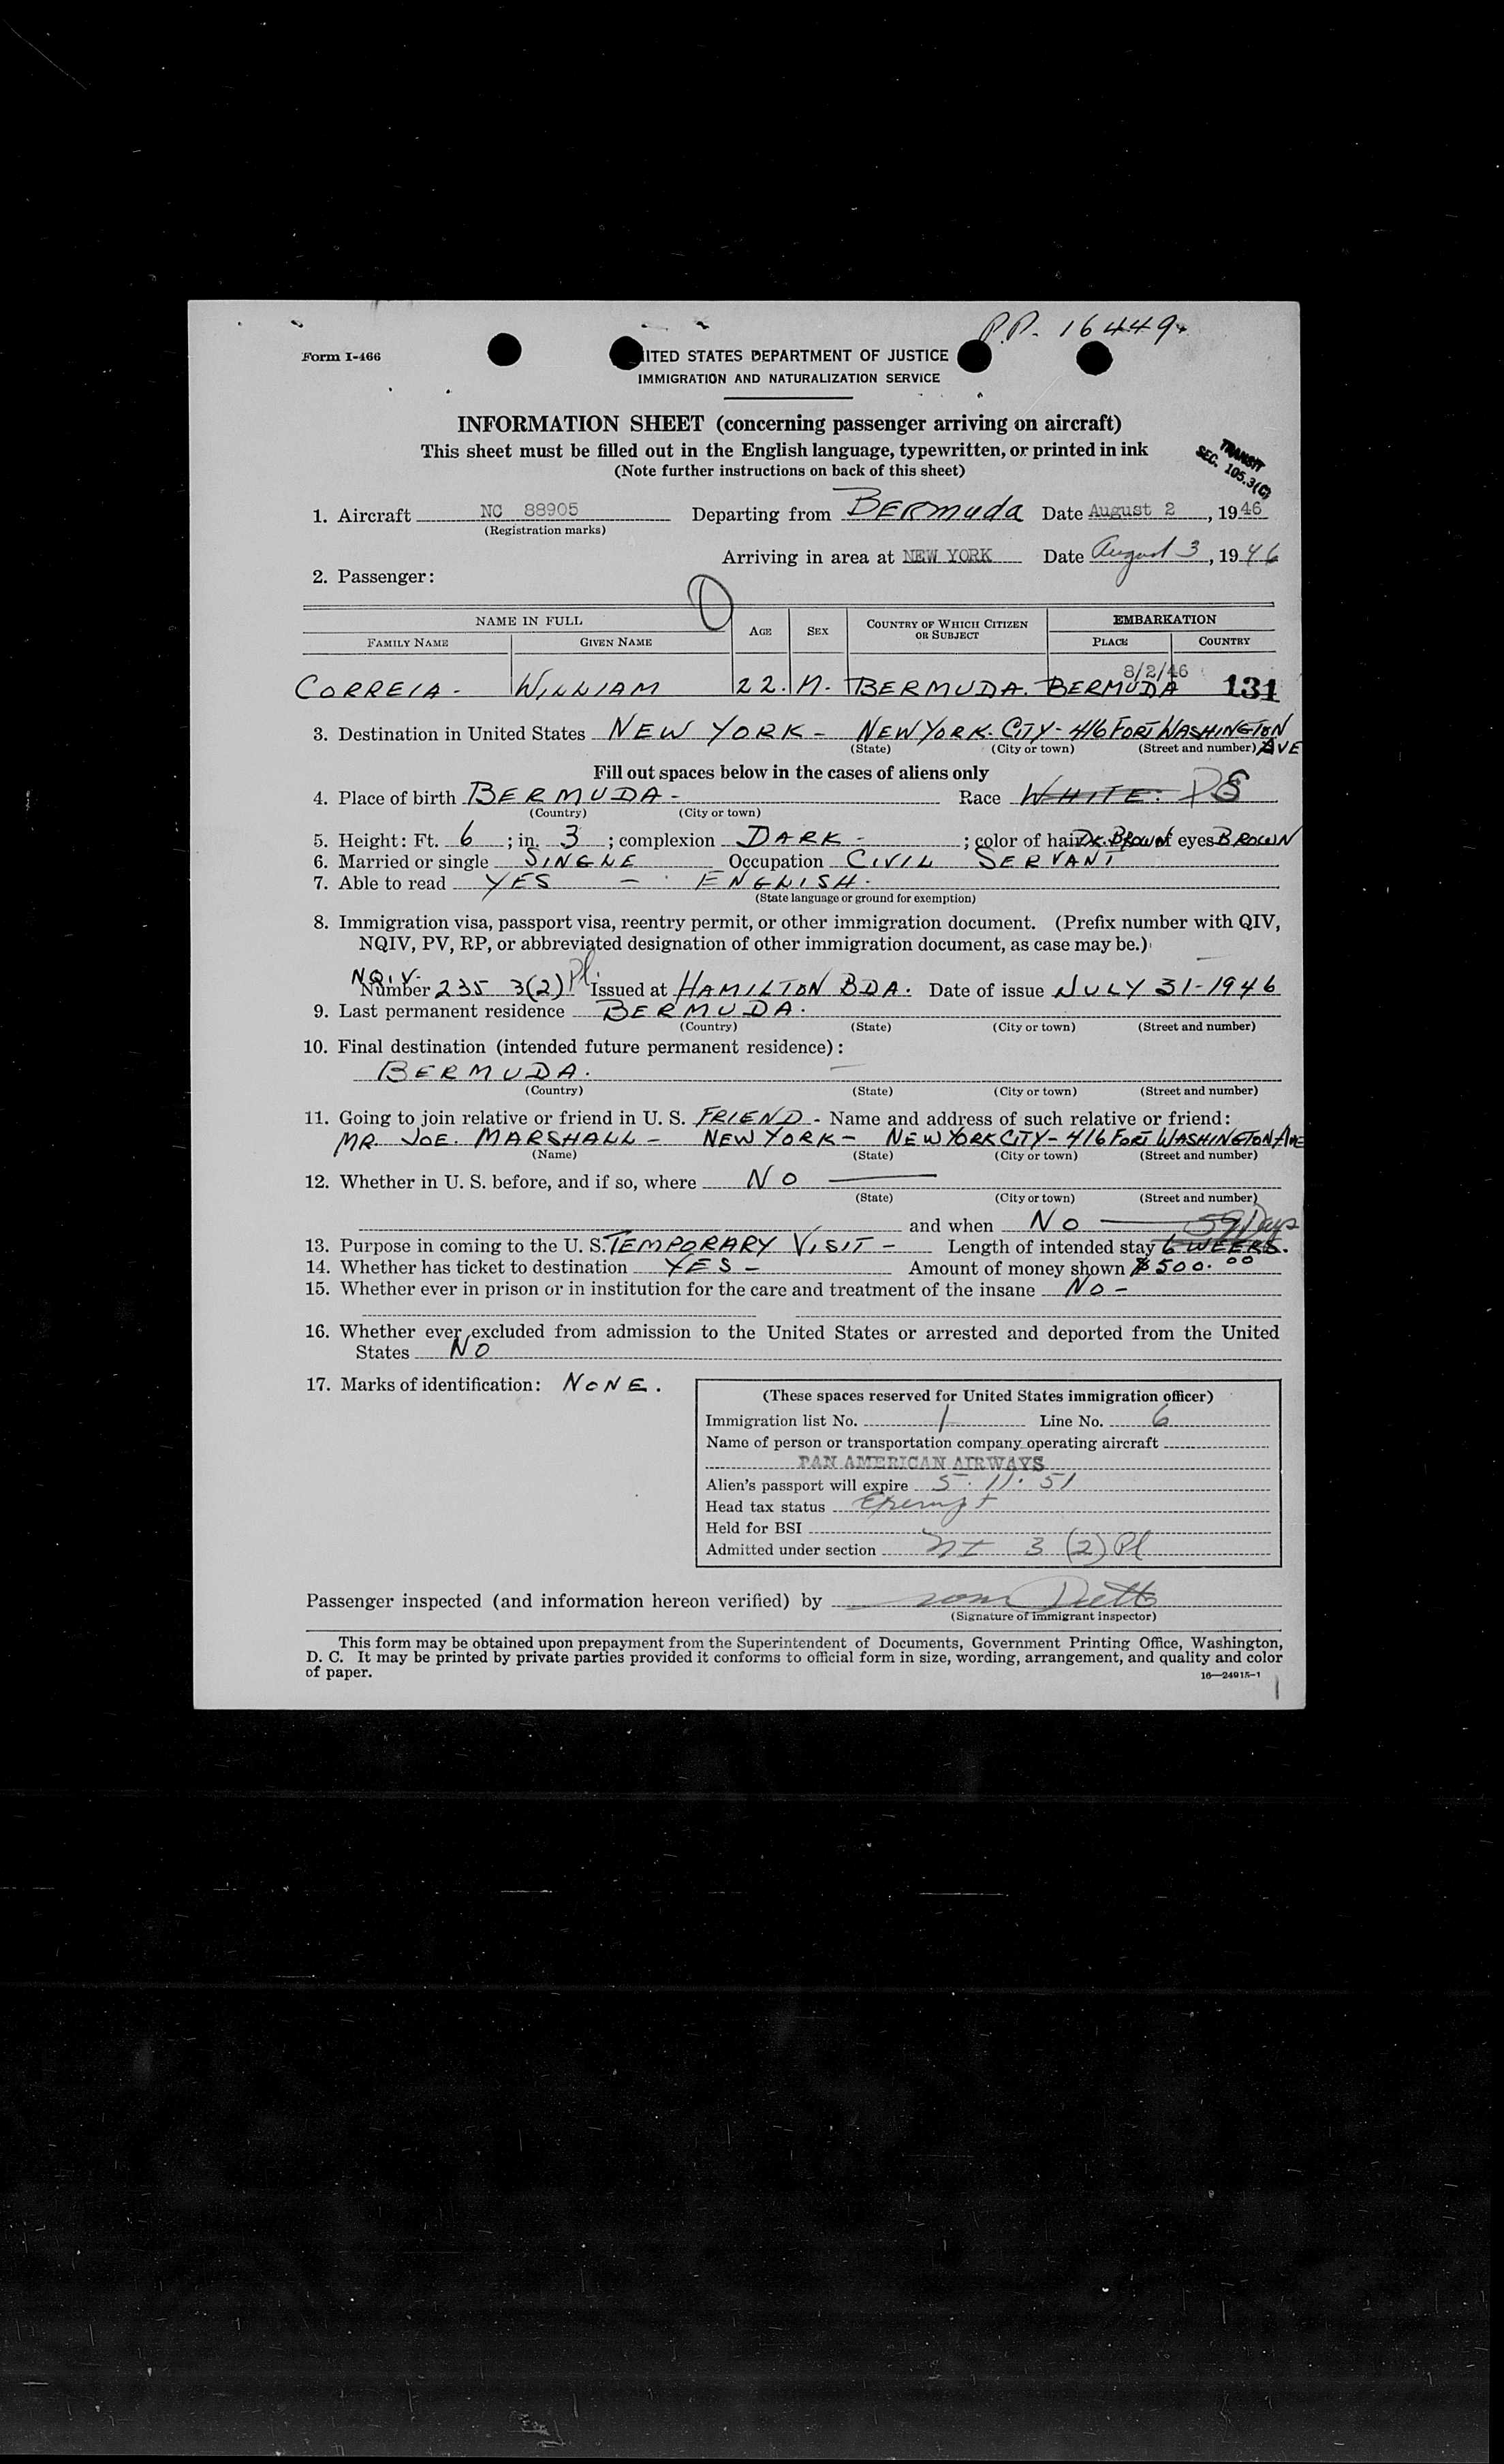 P.P. 16449
Form I-466
UNITED STATES DEPARTMENT OF JUSTICE
IMMIGRATION AND NATURALIZATION SERVICE
INFORMATION SHEET (concerning passenger arriving on aircraft)
This sheet must be filled out in the English language, typewritten, or printed in ink
(Note further instructions on back of this sheet)
TRANSIT
SEC. 105.3(C)
1. Aircraft NC 88905 Departing from BERMUDA Date August 2, 1946
(Registration marks)
Arriving in area at NEW YORK Date August 3, 1946
2. Passenger:
NAME IN FULL
FAMILY NAME GIVEN NAME AGE SEX COUNTRY OF WHICH CITIZEN OR SUBJECT EMBARKATION
PLACE COUNTRY
8/2/46
CORREIA - WILLIAM 22. M. BERMUDA. BERMUDA 131
3. Destination in United States NEW YORK - NEW YORK. CITY - 416 FORT WASHINGTON AVE
(State) (City or town) (Street and number)
Fill out spaces below in the cases of aliens only
4. Place of birth BERMUDA - Race WHITE.
(Country) (City or town)
5. Height: Ft. 6; in. 3; complexion DARK -; color of hair DK. BROWN of eyes BROWN
6. Married or single SINGLE Occupation CIVIL SERVANT
7. Able to read YES - ENGLISH.
(State language or ground for exemption)
8. Immigration visa, passport visa, reentry permit, or other immigration document. (Prefix number with QIV,
NQIV, PV, RP, or abbreviated designation of other immigration document, as case may be.)
NQIV-
Number 235 3(2) Pl. Issued at HAMILTON BDA. Date of issue JULY 31-1946
9. Last permanent residence BERMUDA.
(Country) (State) (City or town) (Street and number)
10. Final destination (intended future permanent residence):
BERMUDA.
(Country) (State) (City or town) (Street and number)
11. Going to join relative or friend in U. S. FRIEND - Name and address of such relative or friend:
MR. JOE. MARSHALL - NEW YORK - NEW YORK CITY - 416 FORT WASHINGTON AVE
(Name) (State) (City or town) (Street and number)
12. Whether in U. S. before, and if so, where NO
(State) (City or town) (Street and number)
and when NO 59 Days
13. Purpose in coming to the U. S. TEMPORARY VISIT - Length of intended stay 6 WEEKS.
14. Whether has ticket to destination YES - Amount of money shown $500.00
15. Whether ever in prison or in institution for the care and treatment of the insane NO -
16. Whether ever excluded from admission to the United States or arrested and deported from the United
States NO
17. Marks of identification: NONE.
(These spaces reserved for United States immigration officer)
Immigration list No. 1 Line No. 6
Name of person or transportation company operating aircraft
PAN AMERICAN AIRWAYS
Alien's passport will expire 5.11.51
Head tax status Exempt
Held for BSI
Admitted under section 3 (2) Pl
Passenger inspected (and information hereon verified) by
(Signature of immigrant inspector)
This form may be obtained upon prepayment from the Superintendent of Documents, Government Printing Office, Washington,
D. C. It may be printed by private parties provided it conforms to official form in size, wording, arrangement, and quality and color
of paper.
16—24915-1